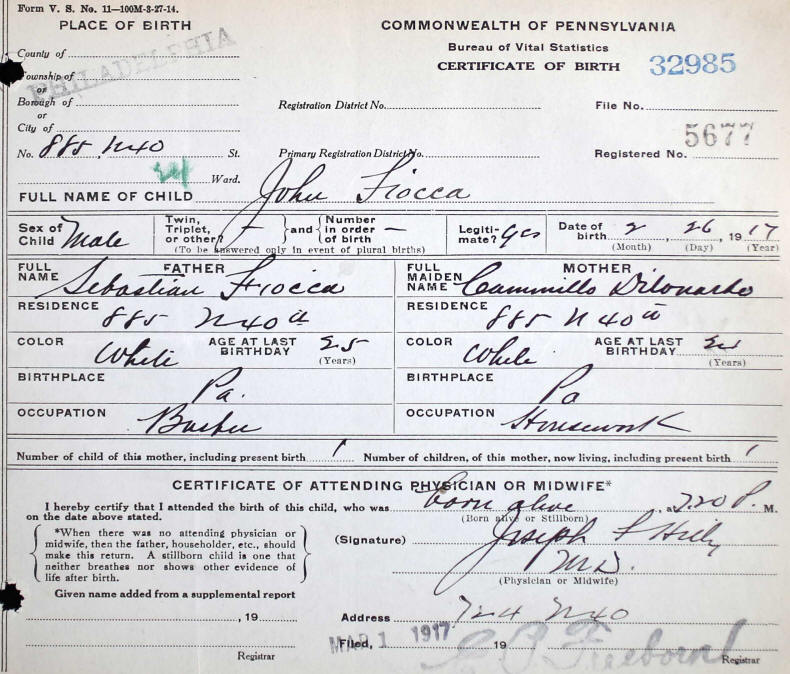 Form V. S. No. 11—100M-3-27-14.
PLACE OF BIRTH
COMMONWEALTH OF PENNSYLVANIA
County of
PHILADELPHIA
Bureau of Vital Statistics
CERTIFICATE OF BIRTH 32985
Township of
or
Borough of
Registration District No. File No.
or
City of
5677
No. 885 N 40 St. Primary Registration District No. Registered No.
24 Ward.
FULL NAME OF CHILD John Fiocca
Sex of Child Male
Twin, Triplet, or other? — and Number in order of birth —
(To be answered only in event of plural births)
Legitimate? yes
Date of birth 2, 26, 1917
(Month) (Day) (Year)
FATHER
FULL NAME Sebastian Fiocca
MOTHER
FULL MAIDEN NAME Cammillo Dilonardo
RESIDENCE 885 N 40th
RESIDENCE 885 N 40th
COLOR White AGE AT LAST BIRTHDAY 25 (Years)
COLOR White AGE AT LAST BIRTHDAY (Years)
BIRTHPLACE Pa.
BIRTHPLACE Pa
OCCUPATION Barber
OCCUPATION Housework
Number of child of this mother, including present birth 1 Number of children, of this mother, now living, including present birth 1
CERTIFICATE OF ATTENDING PHYSICIAN OR MIDWIFE*
I hereby certify that I attended the birth of this child, who was born alive, at 7.20 P. M.
on the date above stated. (Born alive or Stillborn)
*When there was no attending physician or
midwife, then the father, householder, etc., should
make this return. A stillborn child is one that
neither breathes nor shows other evidence of
life after birth.
(Signature) Joseph
M.D.
(Physician or Midwife)
Given name added from a supplemental report
, 19
Address 724 N 40
Filed, MAR 1 1917 19
C P Freeborn
Registrar
Registrar